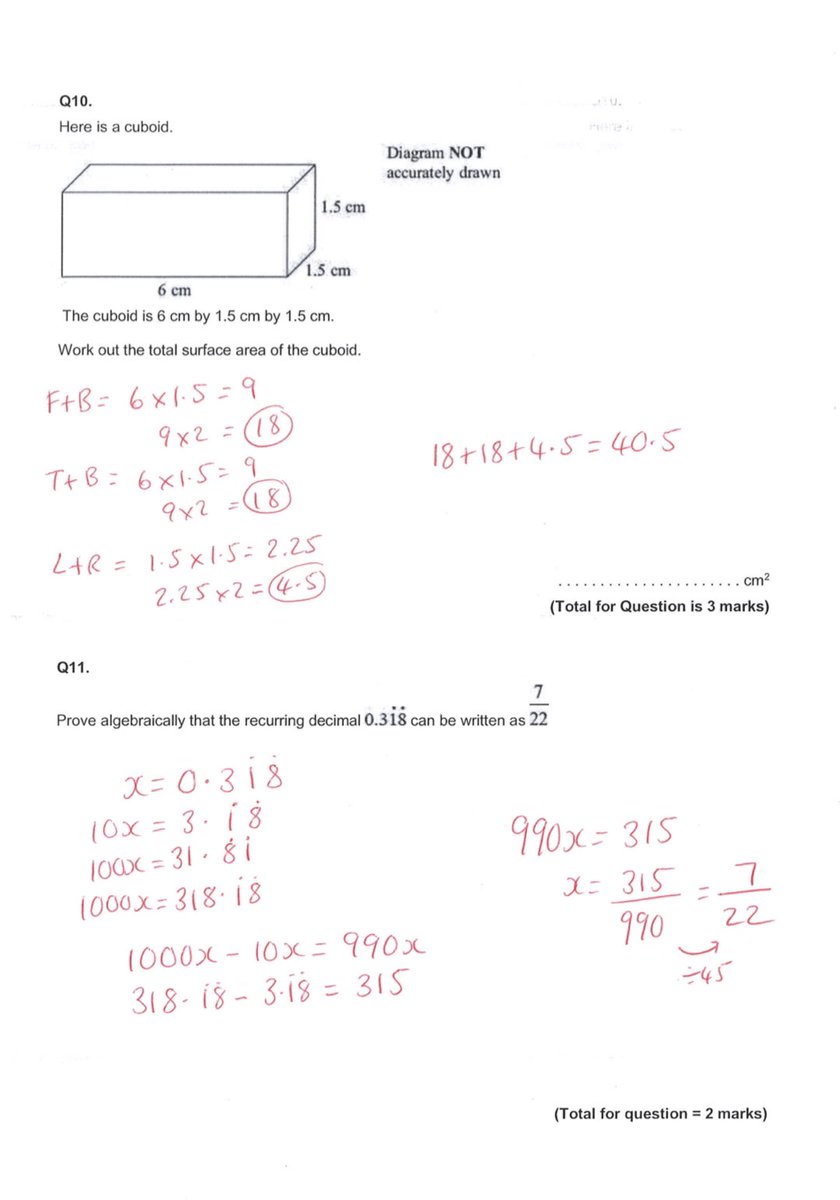 Q10.
Here is a cuboid.
Diagram NOT
accurately drawn
1.5 cm
1.5 cm
6 cm
The cuboid is 6 cm by 1.5 cm by 1.5 cm.
Work out the total surface area of the cuboid.
F+B = 6×1.5 = 9
9×2 = 18
T+B = 6×1.5 = 9
9×2 = 18
L+R = 1.5×1.5 = 2.25
2.25×2 = 4.5
18+18+4.5 = 40.5
...................... cm²
(Total for Question is 3 marks)
Q11.
Prove algebraically that the recurring decimal 0.31̇8̇ can be written as 7/22
x = 0.31̇8̇
10x = 3.1̇8̇
100x = 31.8̇1̇
1000x = 318.1̇8̇
1000x − 10x = 990x
318.1̇8̇ − 3.1̇8̇ = 315
990x = 315
x = 315/990 = 7/22
÷45
(Total for question = 2 marks)